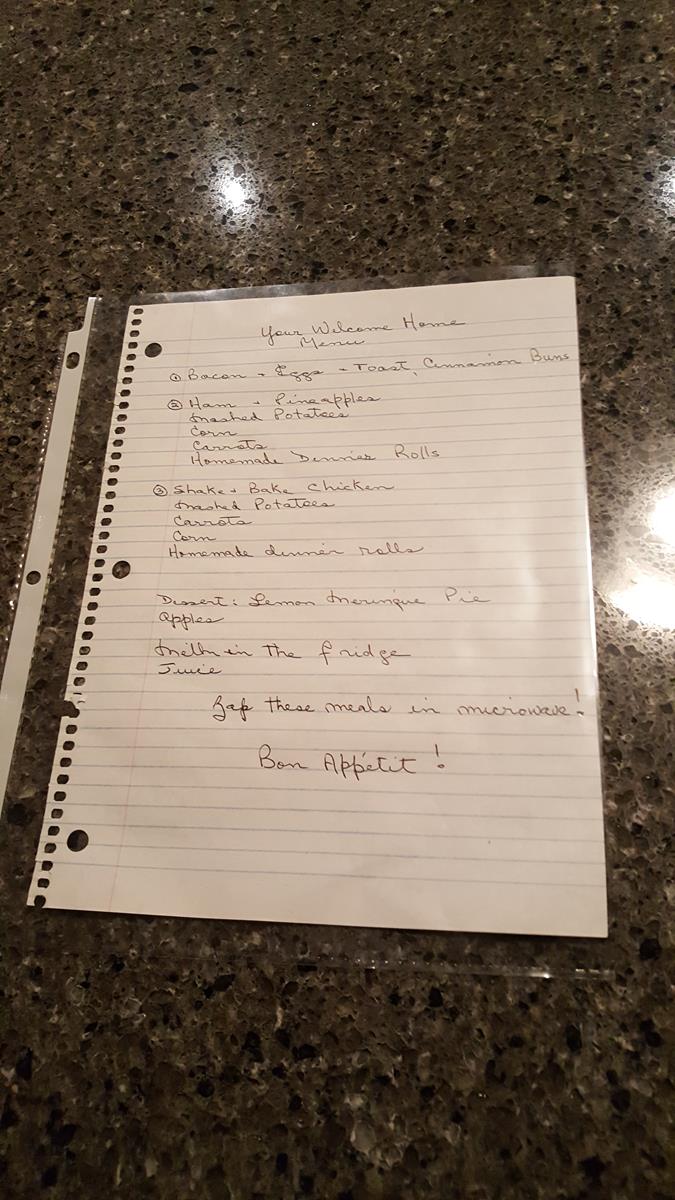 Your Welcome Home
Menu
① Bacon + Eggs + Toast, Cinnamon Buns
② Ham + Pineapples
Mashed Potatoes
Corn
Carrots
Homemade Dinner Rolls
③ Shake + Bake Chicken
Mashed Potatoes
Carrots
Corn
Homemade dinner rolls
Dessert: Lemon Meringue Pie
Apples
Milk in the fridge
Juice
Zap these meals in microwave!
Bon Appétit!